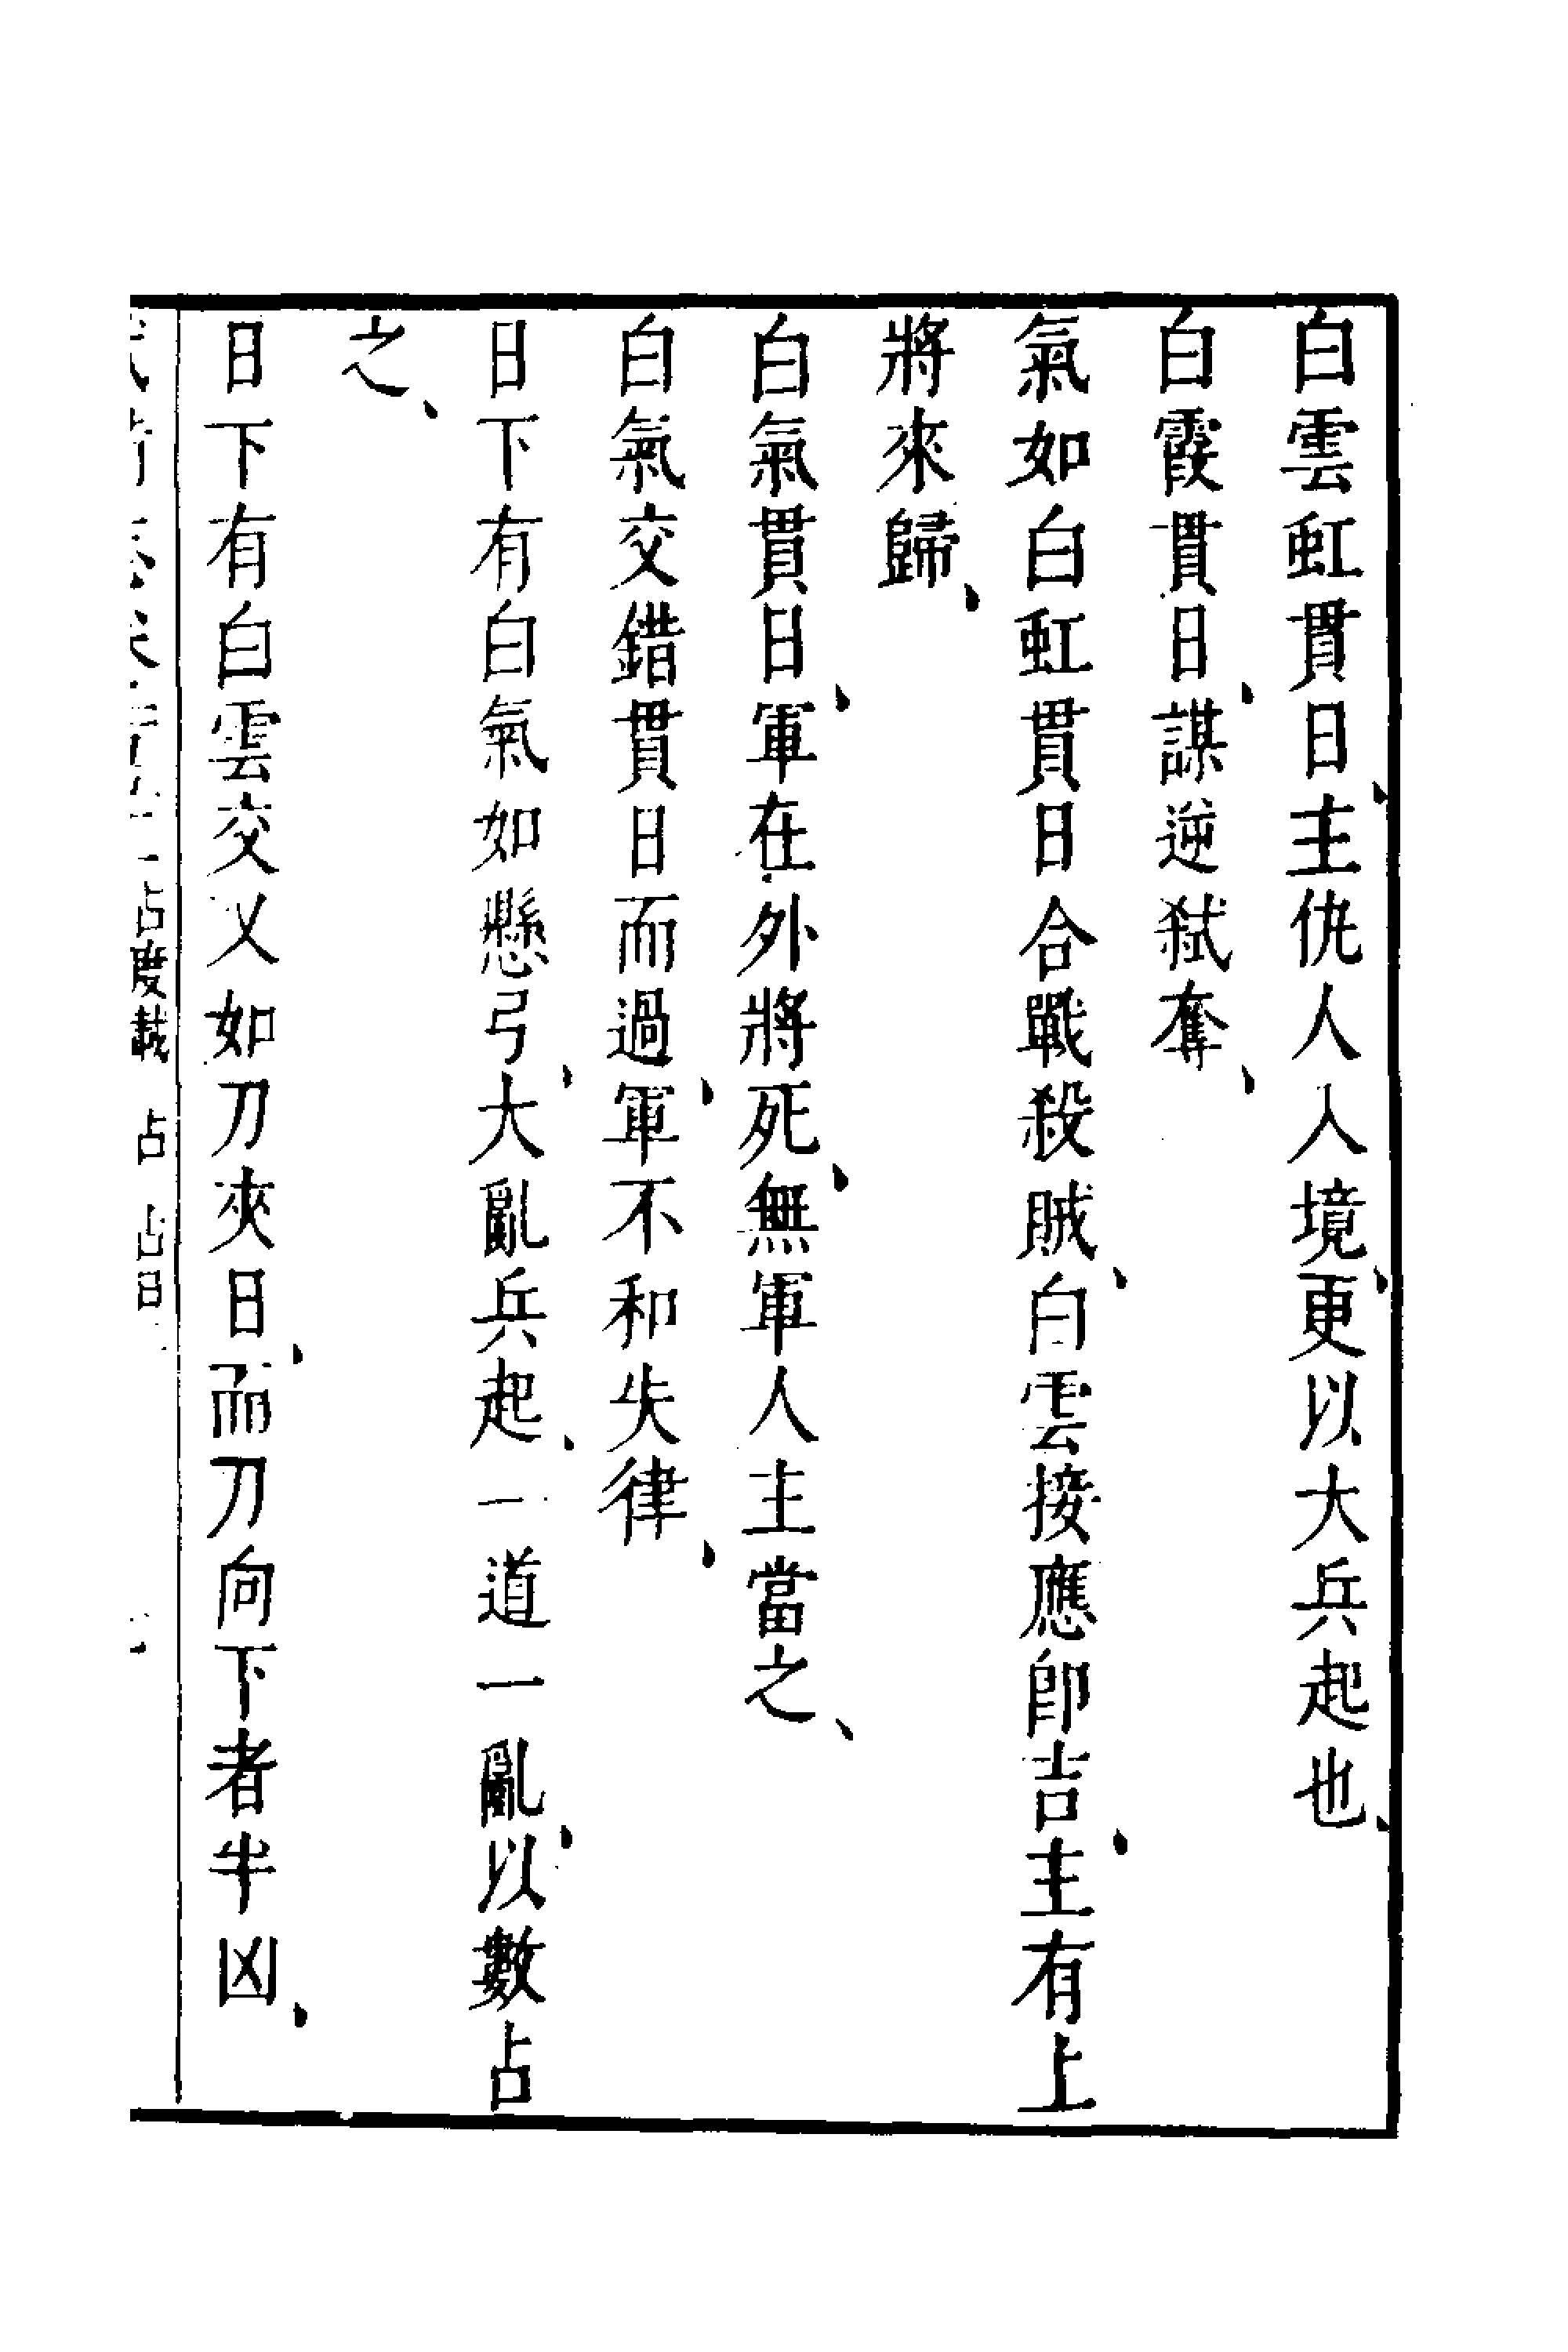 白雲虹貫日、主仇人入境、更以大兵起也、
白霞貫日、謀逆弑奪、
氣如白虹貫日合戰殺賊、白雲接應卽吉、主有上
將來歸、
白氣貫日、軍在外將死、無軍人主當之、
白氣交錯貫日而過、軍不和失律、
日下有白氣如懸弓、大亂兵起、一道一亂、以數占
之、
日下有白雲交乂如刀夾日、而刀向下者半凶、
占度載 占 占日